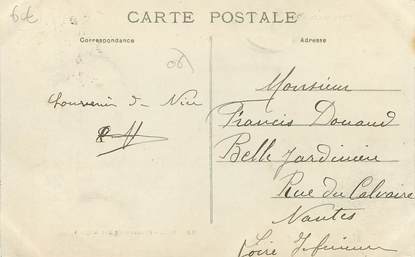 6€
CARTE POSTALE
Correspondance
Adresse
Souvenir de Nice
Monsieur
Francis Douaud
Belle Jardinière
Rue du Calvaire
Nantes
Loire Inférieure